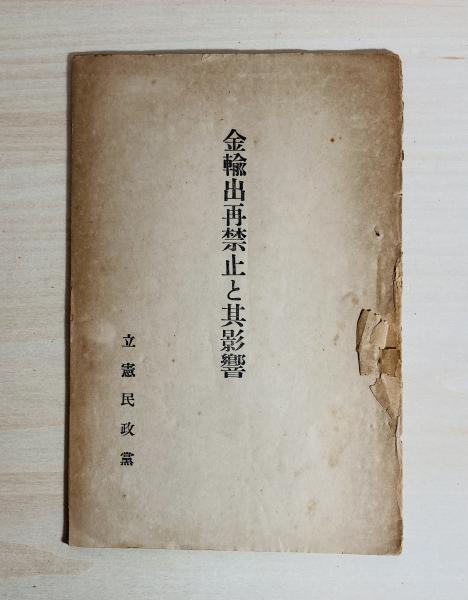 金輸出再禁止と其影響
立憲民政黨